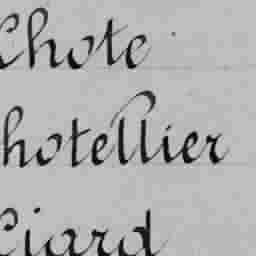 Chote
hotellier
Ciard